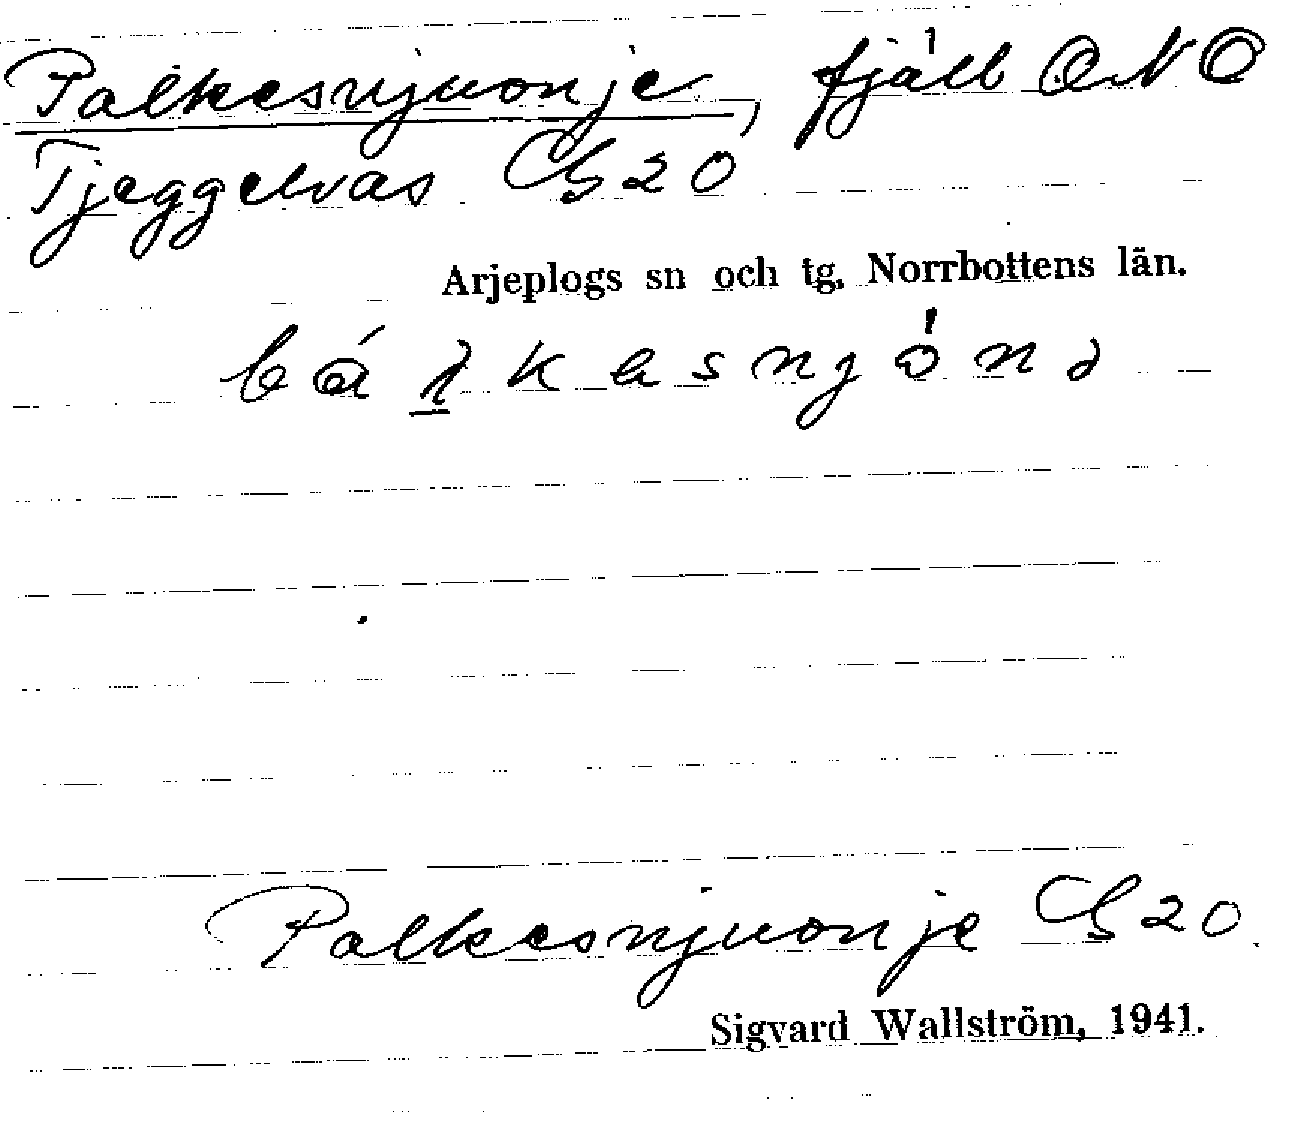 Palkesnjuonje, fjäll ONO
Tjeggelvas Gg 20
Arjeplogs sn och tg, Norrbottens län.
Palkesnjuonje Gg 20.
Sigvard Wallström, 1941.